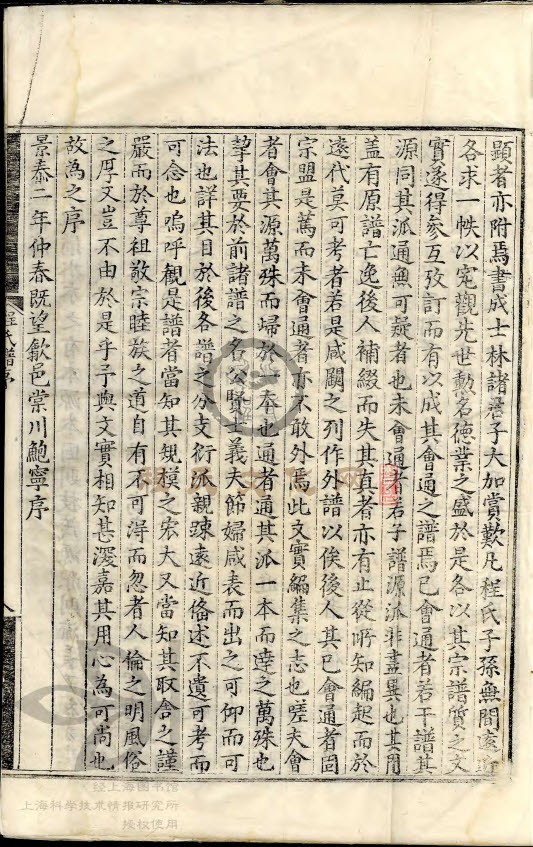 顯者亦附焉書成士林諸君子大加賞歎凡程氏子孫無間遠近
各求一帙以寃觀先世勳名德業之盛於是各以其宗譜質之文
實遂得參互攷訂而有以成其會通之譜焉已會通者若干譜其
源同其派通無可疑者也未會通者若干譜源派非盡異也其間
盖有原譜亡逸後人補綴而失其真者亦有止從所知編起而於
遠代莫可考者若是咸闕之列作外譜以俟後人其已會通者固
宗盟是萬而未會通者亦不敢外焉此文實編集之志也嗟夫會
者會其源萬殊而歸於一本也通者通其派一本而達之萬殊也
挈其要於前諸譜之名公賢士義夫節婦咸表而出之可仰而可
法也詳其目於後各譜之分支衍派親踈遠近俻述不遺可考而
可念也嗚呼觀是譜者當知其規模之宏大又當知其取舍之謹
嚴而於尊祖敬宗睦族之道自有不可得而忽者人倫之明風俗
之厚又豈不由於是乎予與文實相知甚深嘉其用心為可尚也
故為之序
景泰二年仲春既望歙邑棠川鮑寧序
程氏譜序
八
经上海图书馆
上海科学技术情报研究所
授权使用